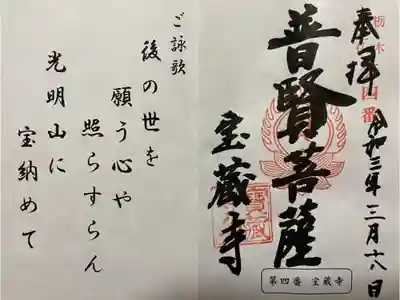 栃木
四番
奉拝
令和三年三月
普賢菩薩
宝蔵寺
第四番 宝蔵寺
ご詠歌
後の世を
願う心や
照らすらん
光明山に
宝納めて